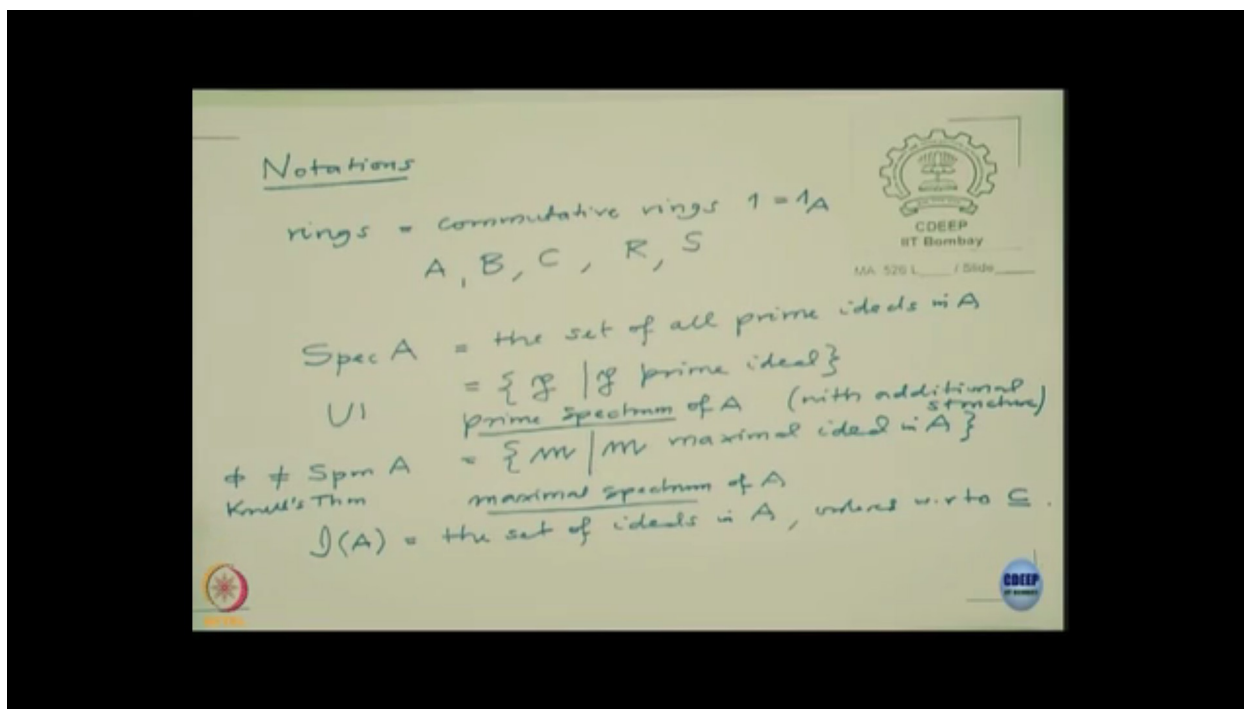 Notations
rings = commutative rings 1 = 1_A
A, B, C, R, S
CDEEP
IIT Bombay
MA 526 L____ / Slide____
Spec A = the set of all prime ideals in A
= { 𝔭 | 𝔭 prime ideal }
U1 prime spectrum of A (with additional structure)
ϕ ≠ Spm A = { 𝔪 | 𝔪 maximal ideal in A }
Krull's Thm maximal spectrum of A
I(A) = the set of ideals in A, ordered w.r to ⊆ .
NPTEL
CDEEP
IIT BOMBAY